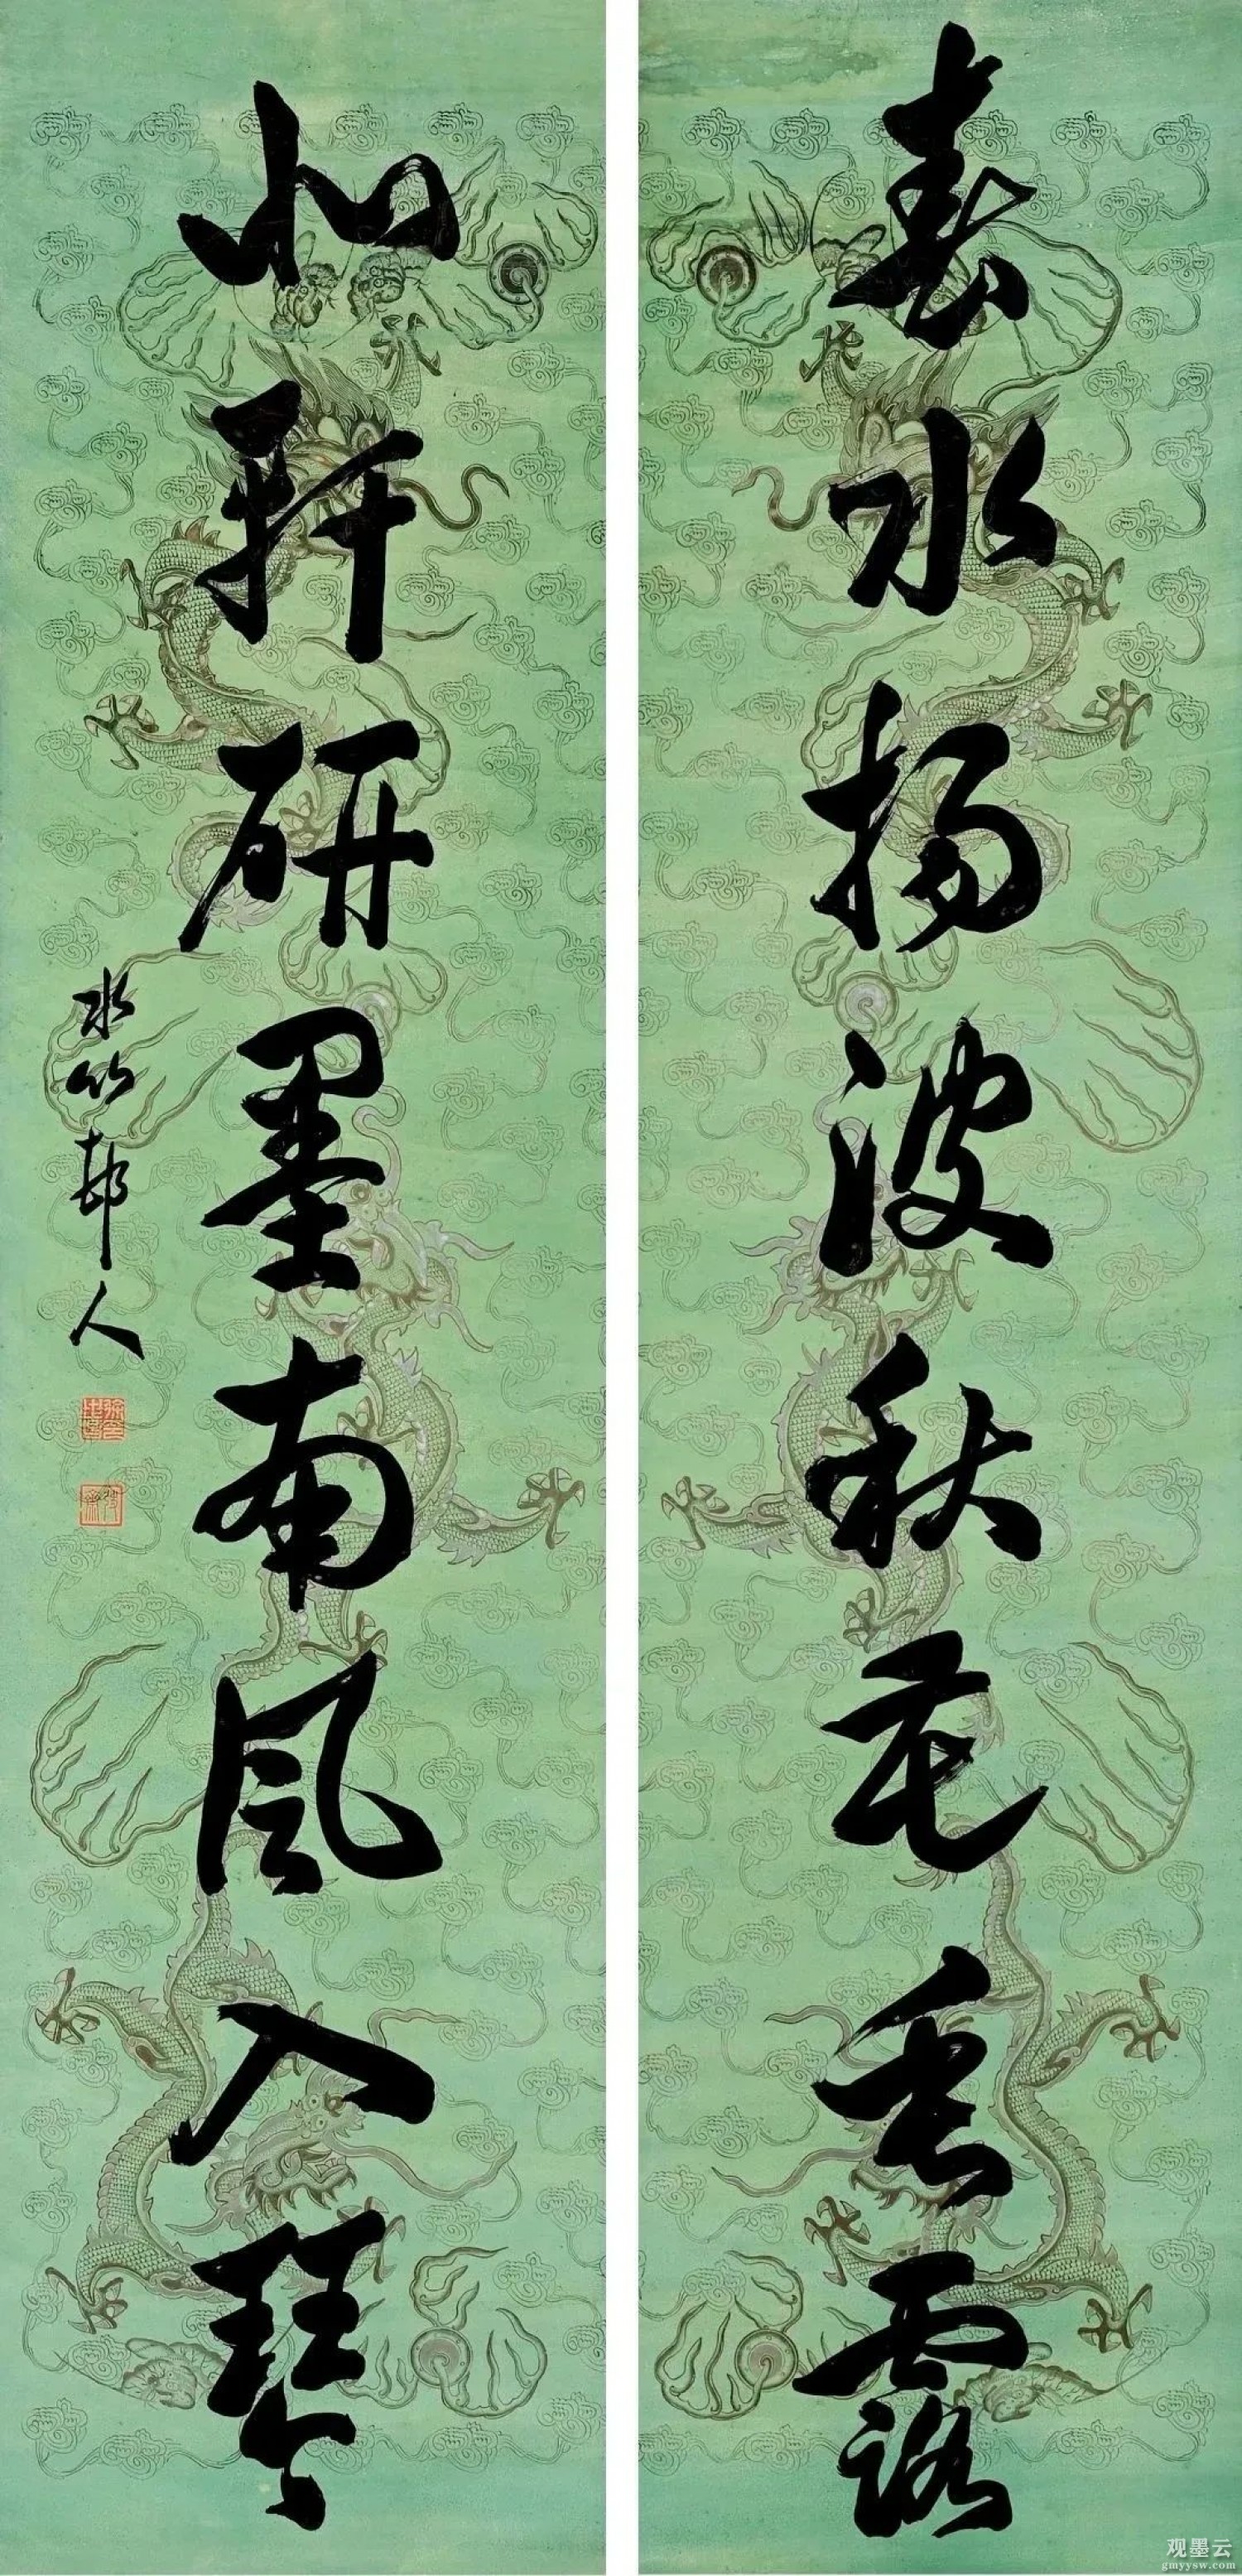 春水揚波秋花垂露
北軒研墨南風入琴
水竹邨人
徐世昌印
观墨云
gmyysw.com